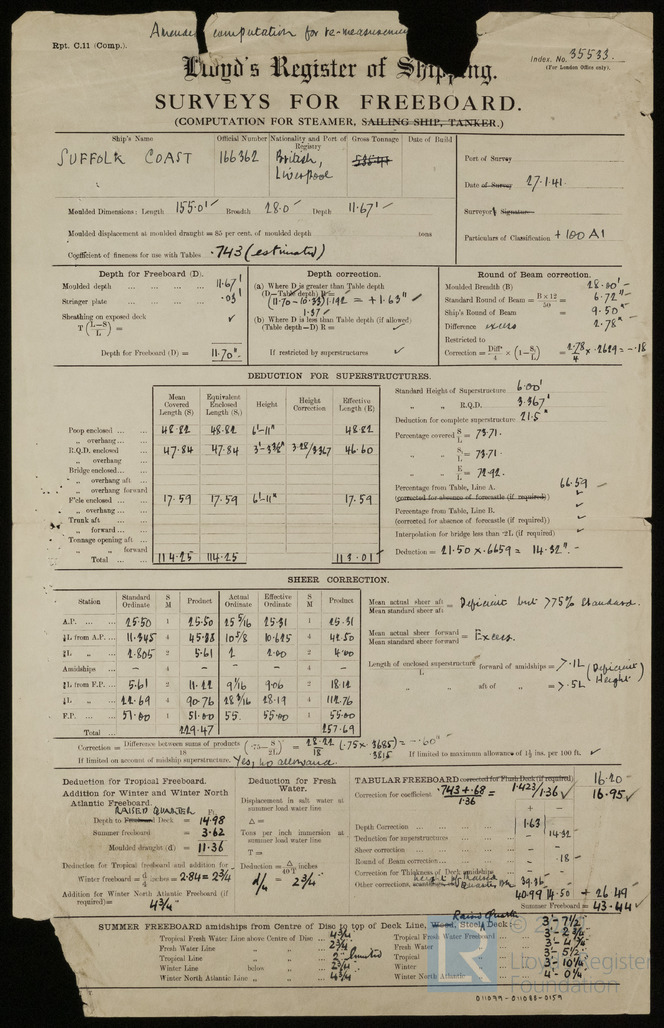 computation for re-measurement
Rpt. C.11 (Comp.).
Index. No. 35533.
(For London Office only).
Lloyd's Register of Shipping.
SURVEYS FOR FREEBOARD.
(COMPUTATION FOR STEAMER, SAILING SHIP, TANKER.)
Ship's Name
Official Number
Nationality and Port of Registry
Gross Tonnage
Date of Build
SUFFOLK COAST
166362
British, Liverpool
Port of Survey
Date of Survey 27.1.41.
Surveyor's Signature
Particulars of Classification +100 A1
Moulded Dimensions: Length 155.0' Breadth 28.0' Depth 11.67'
Moulded displacement at moulded draught = 85 per cent. of moulded depth tons
Coefficient of fineness for use with Tables .743 (estimated)
Depth for Freeboard (D).
Moulded depth 11.67'
Stringer plate .03'
Sheathing on exposed deck ✓
T (L-S/L) =
Depth for Freeboard (D) = 11.70'
Depth correction.
(a) Where D is greater than Table depth
(D-Table depth) R =
(11.70 - 10.33) 1.192 = +1.63" ✓
1.37 ✓
(b) Where D is less than Table depth (if allowed)
(Table depth-D) R = ✓
If restricted by superstructures ✓
Round of Beam correction.
Moulded Breadth (B) 28.00'
Standard Round of Beam = B x 12/50 = 6.72"
Ship's Round of Beam = 9.50"
Difference excess 2.78"
Restricted to
Correction = Diffce/4 × (1-S/L) = 2.78/4 × .2629 = -.18
DEDUCTION FOR SUPERSTRUCTURES.
Mean Covered Length (S)
Equivalent Enclosed Length (S₁)
Height
Height Correction
Effective Length (E)
Poop enclosed 48.82 48.82 6'-11" 48.82
" overhang
R.Q.D. enclosed 47.84 47.84 3'-3⅜" 3.28/3.367 46.60
" overhang
Bridge enclosed
" overhang aft
" overhang forward
F'cle enclosed 17.59 17.59 6'-11" 17.59
" overhang
Trunk aft
" forward
Tonnage opening aft
" " forward
Total 114.25 114.25 113.01
Standard Height of Superstructure 6.00'
" " R.Q.D. 3.367'
Deduction for complete superstructure 21.5"
Percentage covered S/L = 73.71.
" " S₁/L = 73.71.
" " E/L = 72.92.
Percentage from Table, Line A. 66.59
(corrected for absence of forecastle (if required)) ✓
Percentage from Table, Line B. ✓
(corrected for absence of forecastle (if required)) ✓
Interpolation for bridge less than ·2L (if required) ✓
Deduction = 21.50 × .6659 = 14.32".
SHEER CORRECTION.
Station
Standard Ordinate
S M
Product
Actual Ordinate
Effective Ordinate
S M
Product
A.P. 25.50 1 25.50 25 5/16 25.31 1 25.31
⅙L from A.P. 11.345 4 45.38 10⅝ 10.625 4 42.50
⅓L " 2.805 2 5.61 2 2.00 2 4.00
Amidships - 4 - - - 4 -
⅓L from F.P. 5.61 2 11.22 9 1/16 9.06 2 18.12
⅙L " 22.69 4 90.76 28 3/16 28.19 4 112.76
F.P. 51.00 1 51.00 55. 55.00 1 55.00
Total 229.47 257.69
Mean actual sheer aft / Mean standard sheer aft = Deficient but >75% Standard.
Mean actual sheer forward / Mean standard sheer forward = Excess.
Length of enclosed superstructure/L forward of amidships = >.1L (Deficient Height)
" " aft of " = >.5L
Correction = Difference between sums of products/18 (·75 - S/2L) = 28.22/18 (.75 × .3685) = -.60"
.3815
If limited on account of midship superstructure. Yes, no allowance.
If limited to maximum allowance of 1½ ins. per 100 ft. ✓
Deduction for Tropical Freeboard.
Addition for Winter and Winter North Atlantic Freeboard.
RAISED QUARTER Ft.
Depth to Freeboard Deck = 14.98
Summer freeboard = 3.62
Moulded draught (d) = 11.36
Deduction for Tropical freeboard and addition for
Winter freeboard = d/4 inches = 2.84 = 2¾"
Addition for Winter North Atlantic Freeboard (if required) =
4¾"
Deduction for Fresh Water.
Displacement in salt water at summer load water line
Δ =
Tons per inch immersion at summer load water line
T =
Deduction = Δ/40T inches
d/4 = 2¾"
TABULAR FREEBOARD corrected for Flush Deck (if required) 16.20
Correction for coefficient .743 + .68/1.36 = 1.423/1.36 ✓ 16.95 ✓
+ -
Depth Correction 1.63
Deduction for superstructures 14.32
Sheer correction -
Round of Beam correction .18
Correction for Thickness of Deck amidships
Other corrections, 39.36
40.99 14.50 + 26.49
Summer Freeboard = 43.44 ✓
SUMMER FREEBOARD amidships from Centre of Disc to top of Deck Line, Wood, Steel, Raised Quarter Deck 3'-7½"
Tropical Fresh Water Line above Centre of Disc 4¾"
Fresh Water Line " " 2¾"
Tropical Line " " 2" limited
Winter Line below " 2¾"
Winter North Atlantic Line " " 4¾"
Tropical Fresh Water Freeboard 3'-2¾"
Fresh Water " 3'-4¾"
Tropical " 3'-5½"
Winter " 3'-10¼"
Winter North Atlantic " 4'-0¼"
LR
Lloyd's Register
Foundation
011099-011088-0159